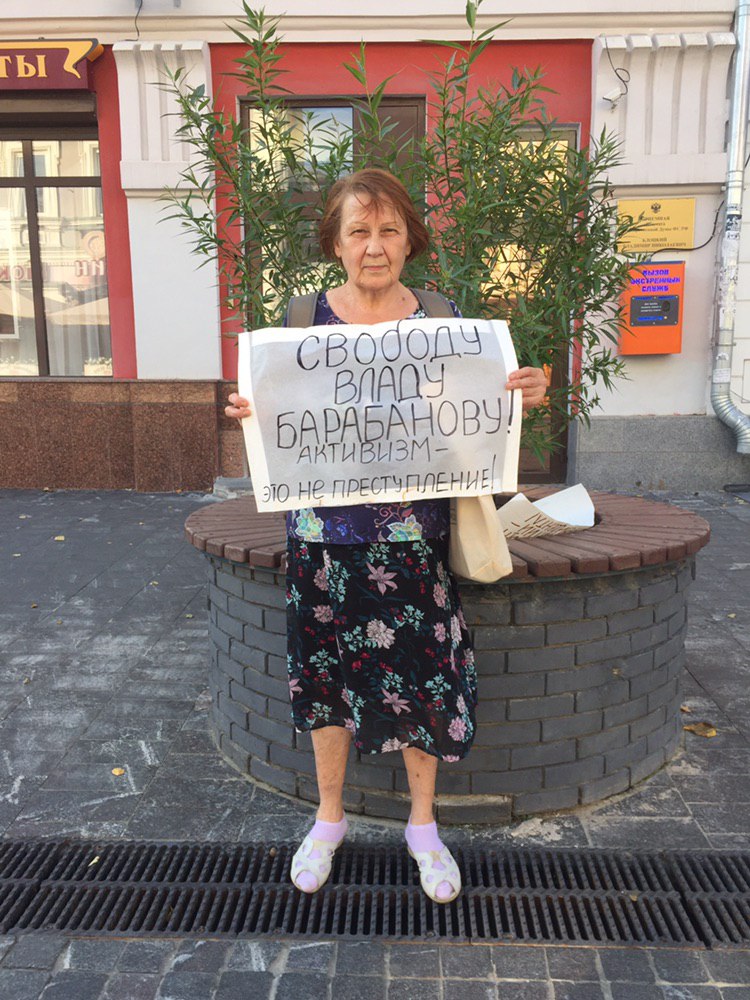 ТЫ
СВОБОДУ
ВЛАДУ
БАРАБАНОВУ!
АКТИВИЗМ –
ЭТО НЕ ПРЕСТУПЛЕНИЕ!
ВЫЗОВ
ЭКСТРЕННЫХ
СЛУЖБ